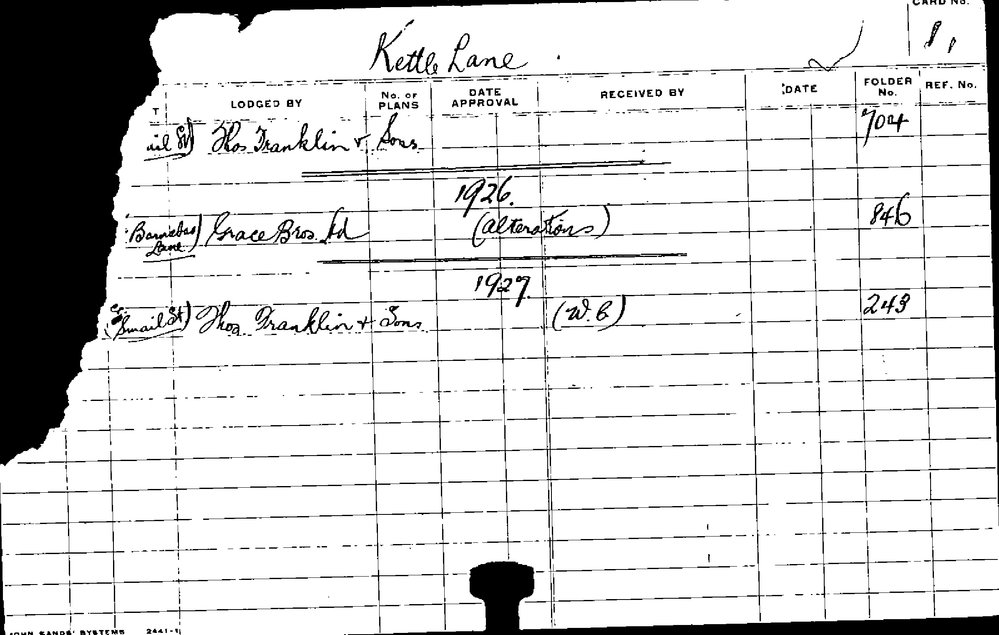 CARD No.
1,
Kettle Lane
T LODGED BY No. OF PLANS DATE APPROVAL RECEIVED BY DATE FOLDER No. REF. No.
ail St) Thos Franklin & Sons 704
1926.
Barnabas Lane) Grace Bros. Ld (alterations) 846
1927.
(Smail St) Thos. Franklin & Sons. (W.C) 243
JOHN SANDS' SYSTEMS 2441-1